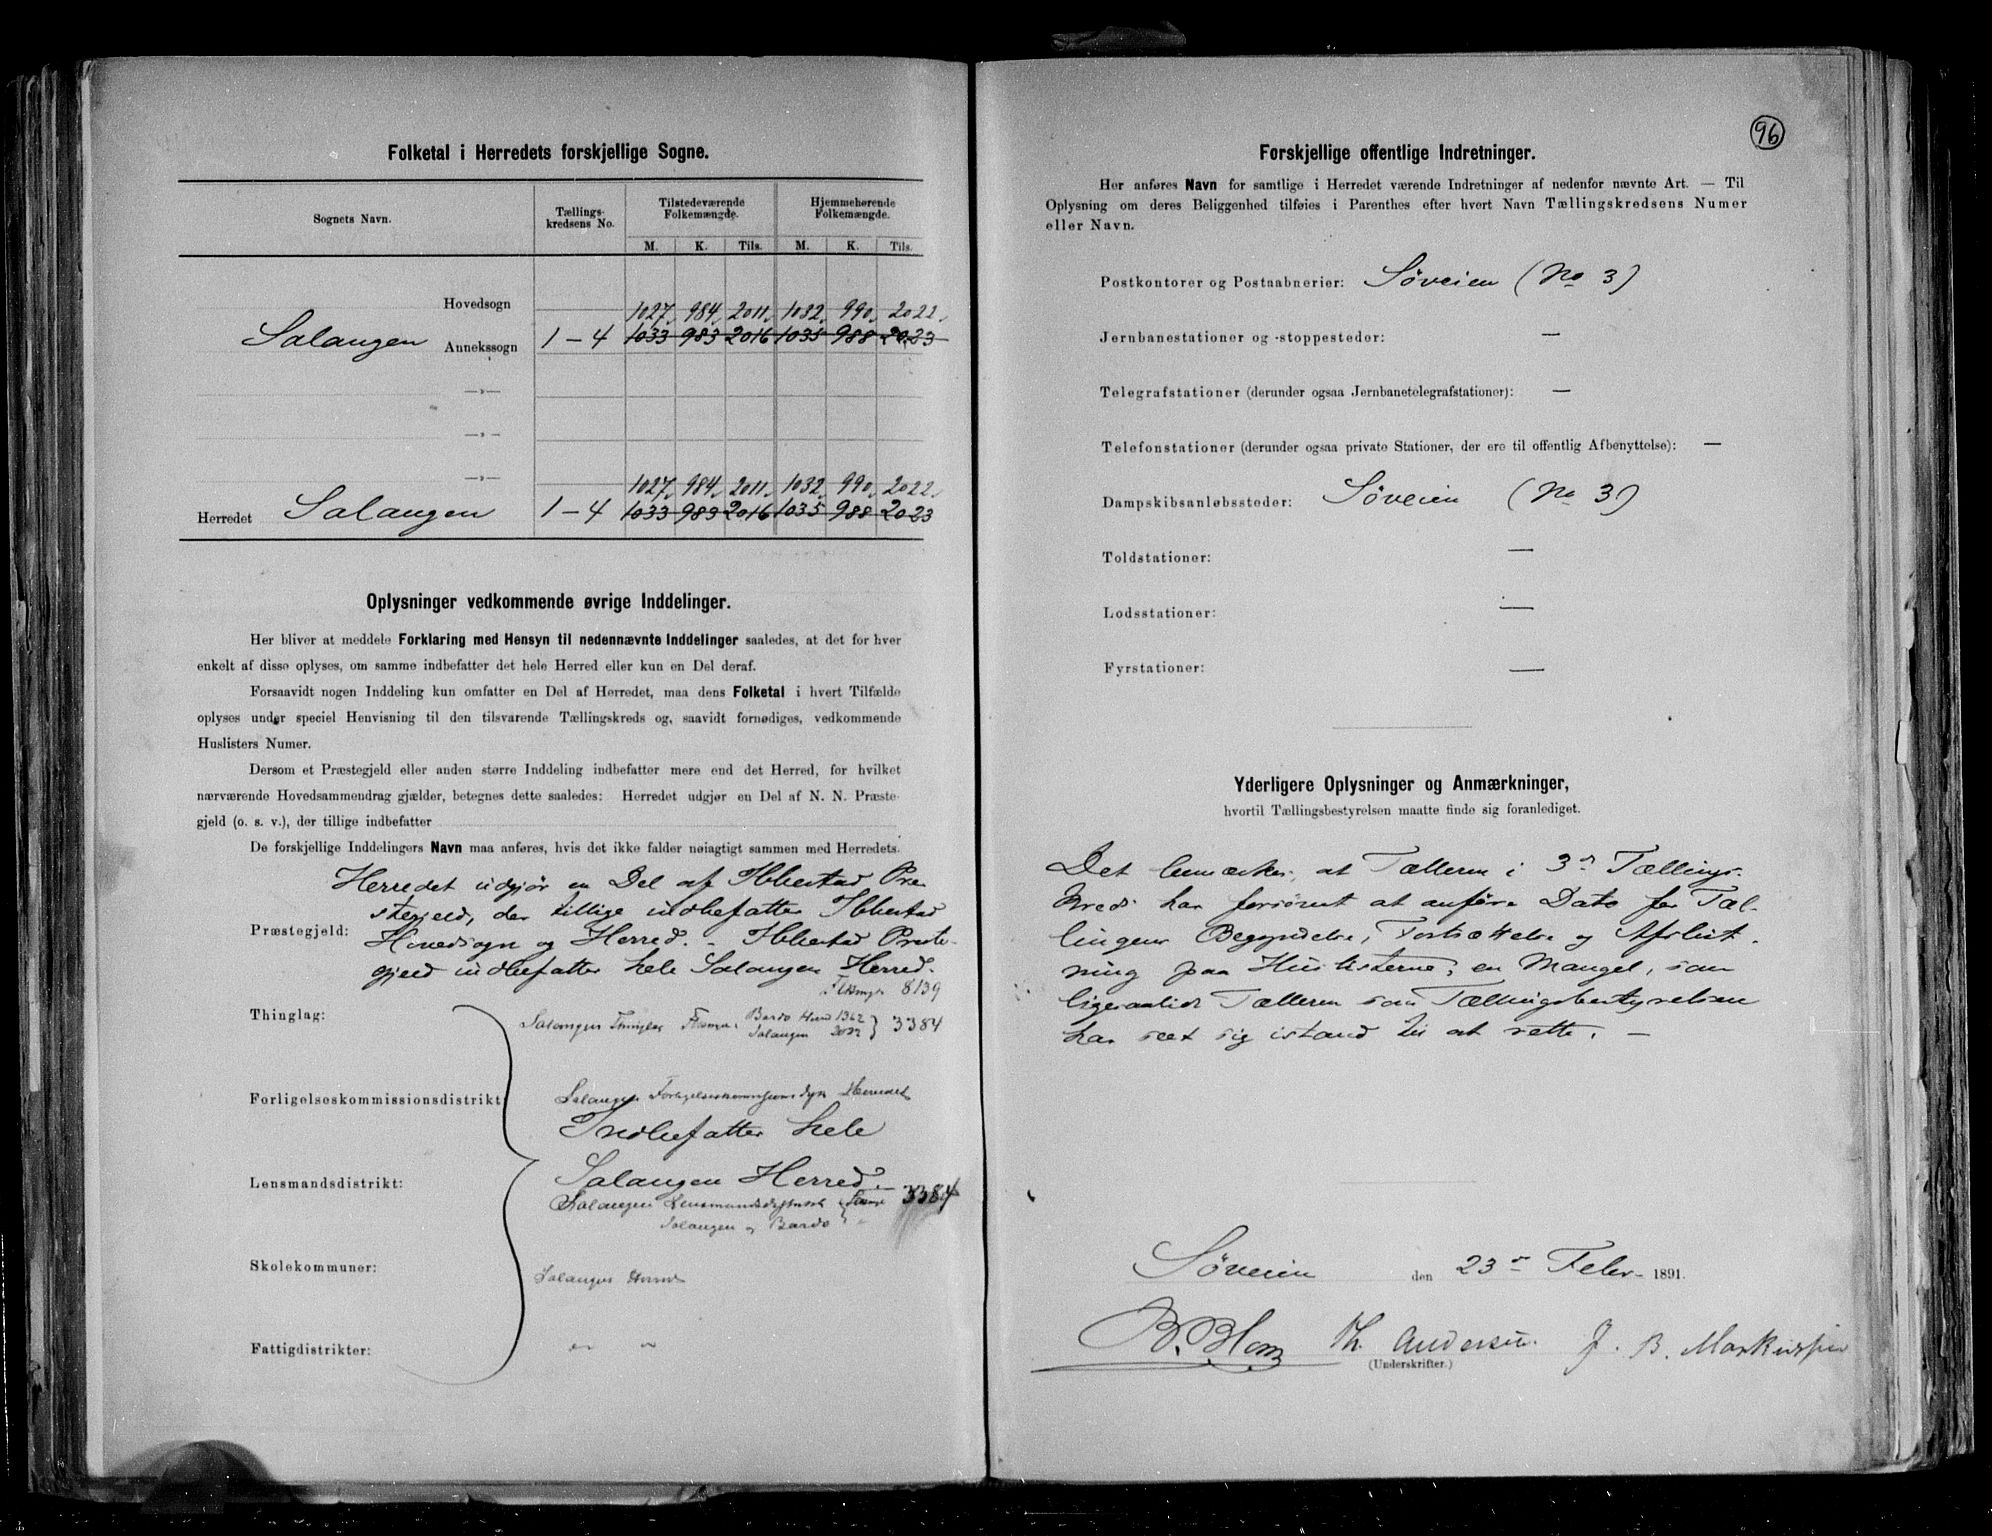 Folketal i Herredets forskjellige Sogne.
Sognets Navn.
Tællings-
kredsens No.
Tilstedeværende
Folkemængde.
Hjemmehørende
Folkemængde.
M. K. Tils. M. K. Tils.
Hovedsogn
1027 984 2011 1032 990 2022
Salangen Annekssogn 1-4 1033 983 2016 1035 988 2023
—„—
—„—
—„—
1027 984 2011 1032 990 2022
Herredet Salangen 1-4 1033 983 2016 1035 988 2023
Oplysninger vedkommende øvrige Inddelinger.
Her bliver at meddele Forklaring med Hensyn til nedennævnte Inddelinger saaledes, at det for hver
enkelt af disse oplyses, om samme indbefatter det hele Herred eller kun en Del deraf.
Forsaavidt nogen Inddeling kun omfatter en Del af Herredet, maa dens Folketal i hvert Tilfælde
oplyses under speciel Henvisning til den tilsvarende Tællingskreds og, saavidt fornødiges, vedkommende
Huslisters Numer.
Dersom et Præstegjeld eller anden større Inddeling indbefatter mere end det Herred, for hvilket
nærværende Hovedsammendrag gjælder, betegnes dette saaledes: Herredet udgjør en Del af N. N. Præste-
gjeld (o. s. v.), der tillige indbefatter
De forskjellige Inddelingers Navn maa anføres, hvis det ikke falder nøiagtigt sammen med Herredets.
Herredet udgjør en Del af Ibbestad Præ
stegjeld, der tillige indbefatter Ibbestad
Præstegjeld: Hovedsogn og Herred. - Ibbestad Præste-
gjeld indbefatter hele Salangen Herred.
8139
Thinglag: Salangen Thinglag Bardo Herred 1362
Salangen 2022 } 3384
Forligelseskommissionsdistrikt: Salangen Forligelseskommissions Herredet
Indbefatter hele
Lensmandsdistrikt: Salangen Herred.
Salangen Lensmandsdistrikt 3384
Salangen og Bardo
Skolekommuner: Salangen Herred
Fattigdistrikter: „ „
96
Forskjellige offentlige Indretninger.
Her anføres Navn for samtlige i Herredet værende Indretninger af nedenfor nævnte Art. — Til
Oplysning om deres Beliggenhed tilføies i Parenthes efter hvert Navn Tællingskredsens Numer
eller Navn.
Postkontorer og Postaabnerier: Søveien (No 3)
Jernbanestationer og -stoppesteder: —
Telegrafstationer (derunder ogsaa Jernbanetelegrafstationer): —
Telefonstationer (derunder ogsaa private Stationer, der ere til offentlig Afbenyttelse): —
Dampskibsanløbssteder: Søveien (No 3)
Toldstationer: —
Lodsstationer: —
Fyrstationer: —
Yderligere Oplysninger og Anmærkninger,
hvortil Tællingsbestyrelsen maatte finde sig foranlediget.
Det bemærkes, at Tælleren i 3die Tællings-
kreds har forsømt at anføre Dato for Tæl-
lingens Begyndelse, Fortsættelse og Afslut-
ning paa Huslisterne; en Mangel, som
ligesaalidt Tælleren som Tællingsbestyrelsen
har seet sig istand til at rette. —
Søveien den 23de Febr. 1891.
B. Blom Th. Andersen. J. B. Markussen
(Underskrifter.)